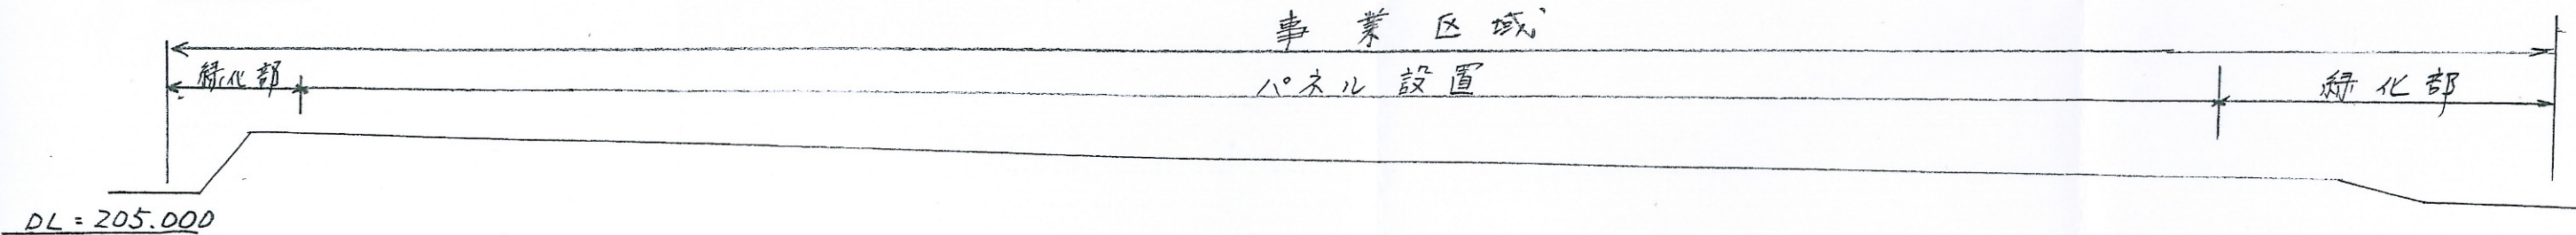 事業区域
緑化部 パネル設置 緑化部
DL=205.000